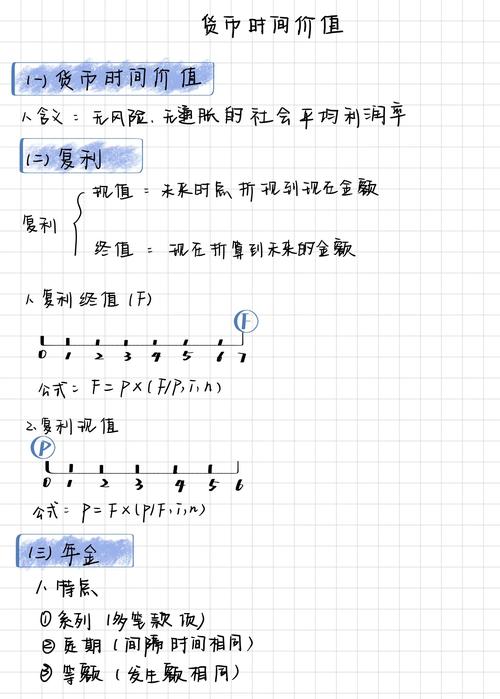 货币时间价值
(一) 货币时间价值
1、含义：无风险、无通胀的社会平均利润率
(二) 复利
复利
现值 = 未来时点折现到现在金额
终值 = 现在折算到未来的金额
1、复利终值 (F)
F
0 1 2 3 4 5 6 7
公式：F = P×(F/P,i,n)
2、复利现值
P
0 1 2 3 4 5 6
公式：P = F×(P/F,i,n)
(三) 年金
1、特点
① 系列 (多笔款项)
② 定期 (间隔时间相同)
③ 等额 (发生额相同)